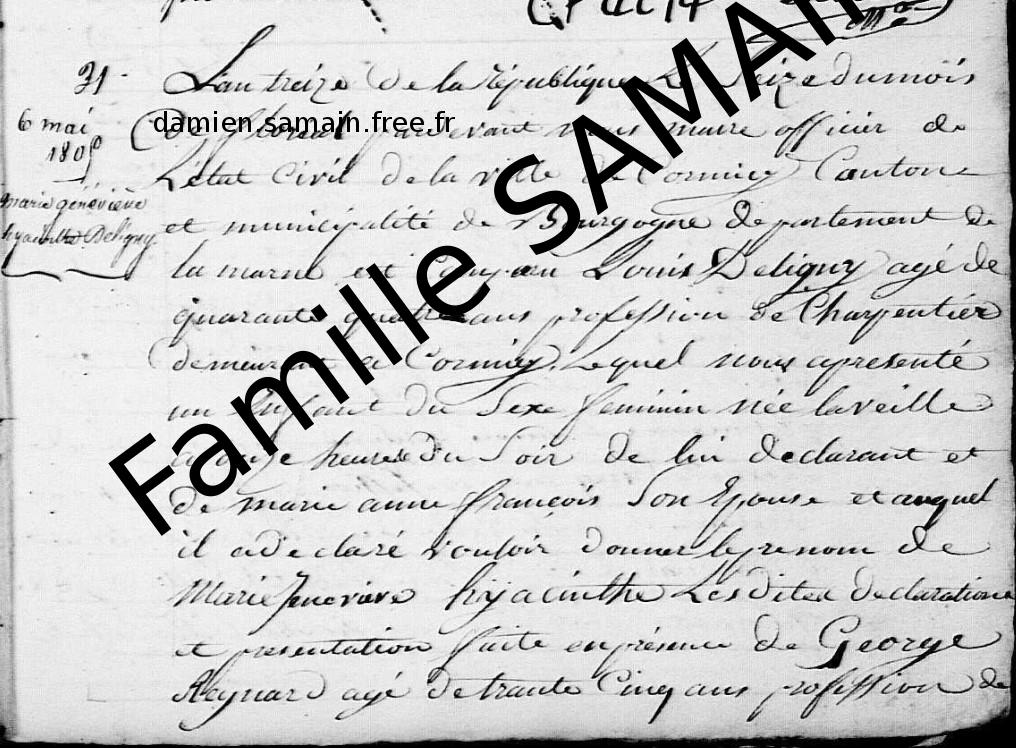 31.
6 mai
1805
marie généviève
hyacinthe Deligny.
L'an treize de la République Le Seize du mois
De floreal pardevant nous maire officier de
L'état Civil de la ville de Cormicy Canton
et municipalité de Bourgogne departement de
la marne est Comparu Louis Deligny agé de
quarante quatre ans profession de Charpentier
demeurant a Cormicy. Lequel nous apresenté
un Enfant du Sexe feminin née la veille
a onze heures du Soir de lui declarant et
de marie anne françois Son Epouse et auquel
il a declaré vouloir donner le prenom de
Marie Jenevieve hyacinthe Lesdites declaration
et presentation faite en présence de George
Reynard agé de trante Cinq ans profession de
damien.samain.free.fr
Famille SAMAIN